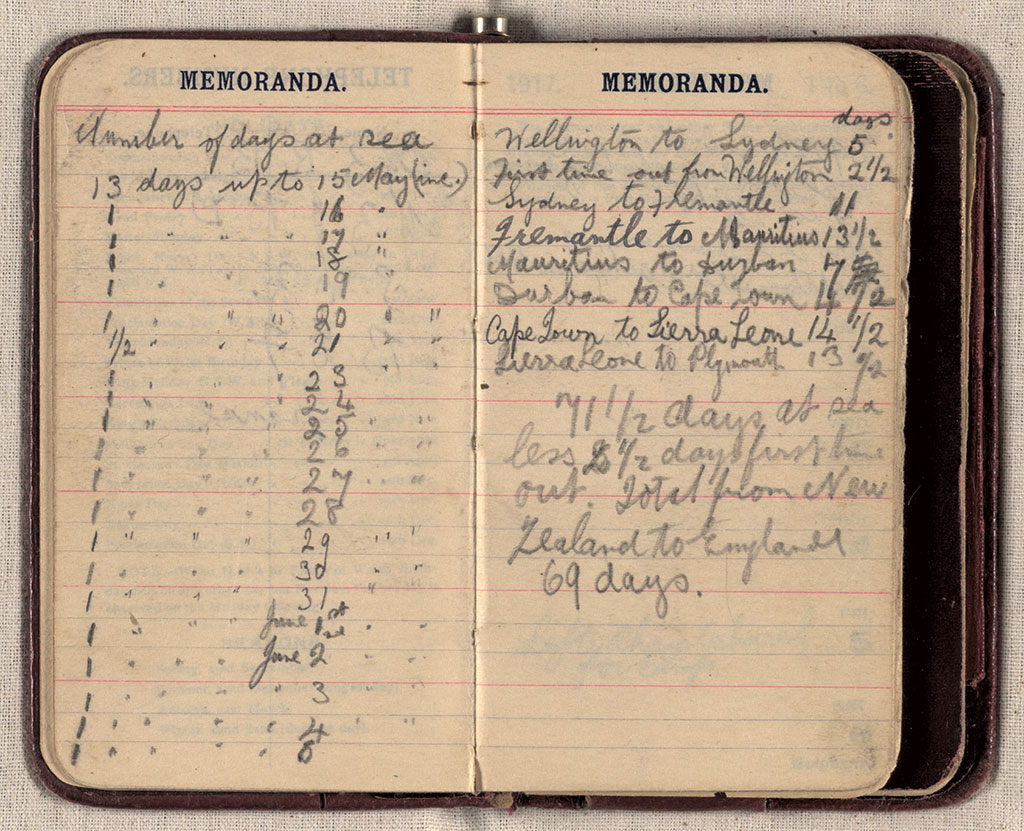 MEMORANDA.
Number of days at sea
13 days up to 15 May (inc.)
1 16 "
1 " " " " 17 "
1 18 "
1 " 19 "
1 " " " 20 " "
1/2 " " " 21 " "
1 " " 23
1 " " " 24 " "
1 " " 25 " "
1 " 26 "
1 " " " 27 " "
1 " " " 28
1 " " " 29 " "
1 30 "
1 " " " 31 "
1 " " " June 1st " "
1 " " " June 2nd " "
1 " " " " 3
1 " " " " 4 " "
1 " " " " 5
MEMORANDA.
days
Wellington to Sydney 5
First time out from Wellington 2 1/2
Sydney to Fremantle 11
Fremantle to Mauritius 13 1/2
Mauritius to Durban 7
Durban to Cape Town 4 1/2
Cape Town to Sierra Leone 14 1/2
Sierra Leone to Plymouth 13 1/2
71 1/2 days at sea
less 2 1/2 days first time
out. Total from New
Zealand to England
69 days.